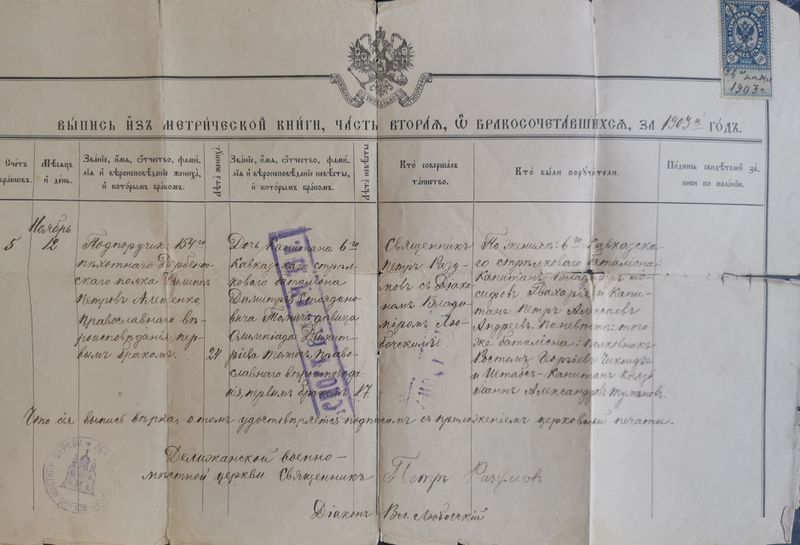 26го ноября
1903 г.
ВЫПИСЬ ИЗЪ МЕТРИЧЕСКОЙ КНИГИ, ЧАСТЬ ВТОРАЯ, Ѿ БРАКОСОЧЕТАВШИХСЯ, ЗА 1903й ГОДЪ.
Счетъ браковъ.
Мѣсяцъ и день.
Званіе, имя, отчество, фами-
лія и вѣроисповѣданіе жениха,
и которымъ бракомъ.
Лѣта жениха.
Званіе, имя, отчество, фами-
лія и вѣроисповѣданіе невѣсты,
и которымъ бракомъ.
Лѣта невѣсты.
Кто совершалъ
таинство.
Кто были поручители.
Подпись свидѣтелей за-
писи по желанію.
5
Ноябрь
12
Подпоручикъ 154го
пѣхотнаго Дербент-
скаго полка Филиппъ
Петровъ Алеиенко,
православнаго вѣ-
роисповѣданія, пер-
вымъ бракомъ.
24
Дочь Капитана 6го
Кавказскаго стрѣл-
коваго баталіона
Димитрія
вича дѣвица
Олимпіада Димит-
ріева Право-
славнаго вѣроисповѣда-
нія, первымъ бракомъ
17
Священникъ
Петръ Разу-
мовъ съ Діако-
номъ Влади-
міромъ Лю-
бочскимъ
По женихѣ: 6го Кавказска-
го стрѣлковаго баталіона:
Капитанъ
и Капи-
танъ Петръ Алексѣевъ
Андреевъ. По невѣстѣ: того-
же баталіона: Полковникъ
Георгіевъ
и Штабсъ-Капитанъ Князь
Іоаннъ Александровъ Тумановъ.
Что сія выпись вѣрна, о томъ удостовѣряется подписомъ съ приложеніемъ церковной печати.
Делижанской военно-
мѣстной церкви Священникъ Петръ Разумовъ
Діаконъ Вл. Любочскій